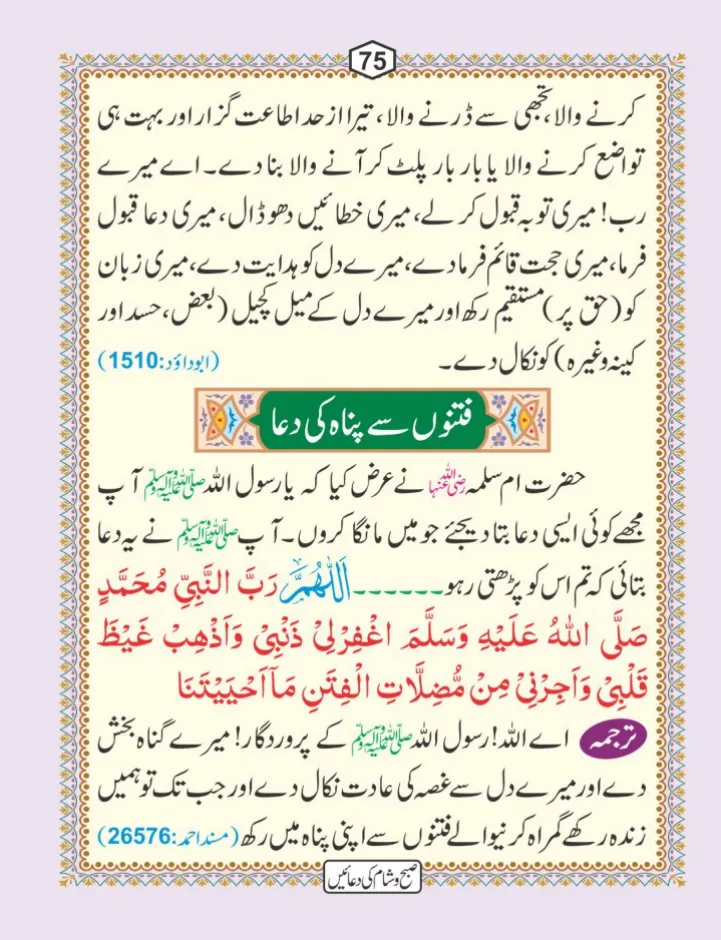 75
کرنے والا، تجھی سے ڈرنے والا، تیرا از حد اطاعت گزار اور بہت ہی
تواضع کرنے والا یا بار بار پلٹ کر آنے والا بنا دے۔ اے میرے
رب! میری توبہ قبول کر لے، میری خطائیں دھو ڈال، میری دعا قبول
فرما، میری حجت قائم فرما دے، میرے دل کو ہدایت دے، میری زبان
کو (حق پر) مستقیم رکھ اور میرے دل کے میل کچیل (بعض، حسد اور
کینہ وغیرہ) کو نکال دے۔ (ابوداؤد:1510)
فتنوں سے پناہ کی دعا
حضرت ام سلمہ رضی اللہ عنہا نے عرض کیا کہ یا رسول اللہ ﷺ آپ
مجھے کوئی ایسی دعا بتا دیجئے جو میں مانگا کروں۔ آپ ﷺ نے یہ دعا
بتائی کہ تم اس کو پڑھتی رہو ۔۔۔۔۔۔ اَللّٰهُمَّ رَبَّ النَّبِيِّ مُحَمَّدٍ
صَلَّى اللهُ عَلَيْهِ وَسَلَّمَ اغْفِرْلِيْ ذَنْبِيْ وَاَذْهِبْ غَيْظَ
قَلْبِيْ وَاَجِرْنِيْ مِنْ مُّضِلَّاتِ الْفِتَنِ مَآ اَحْيَيْتَنَا
ترجمہ اے اللہ! رسول اللہ ﷺ کے پروردگار! میرے گناہ بخش
دے اور میرے دل سے غصہ کی عادت نکال دے اور جب تک تو ہمیں
زندہ رکھے گمراہ کرنیوالے فتنوں سے اپنی پناہ میں رکھ (مسند احمد:26576)
صبح و شام کی دعائیں